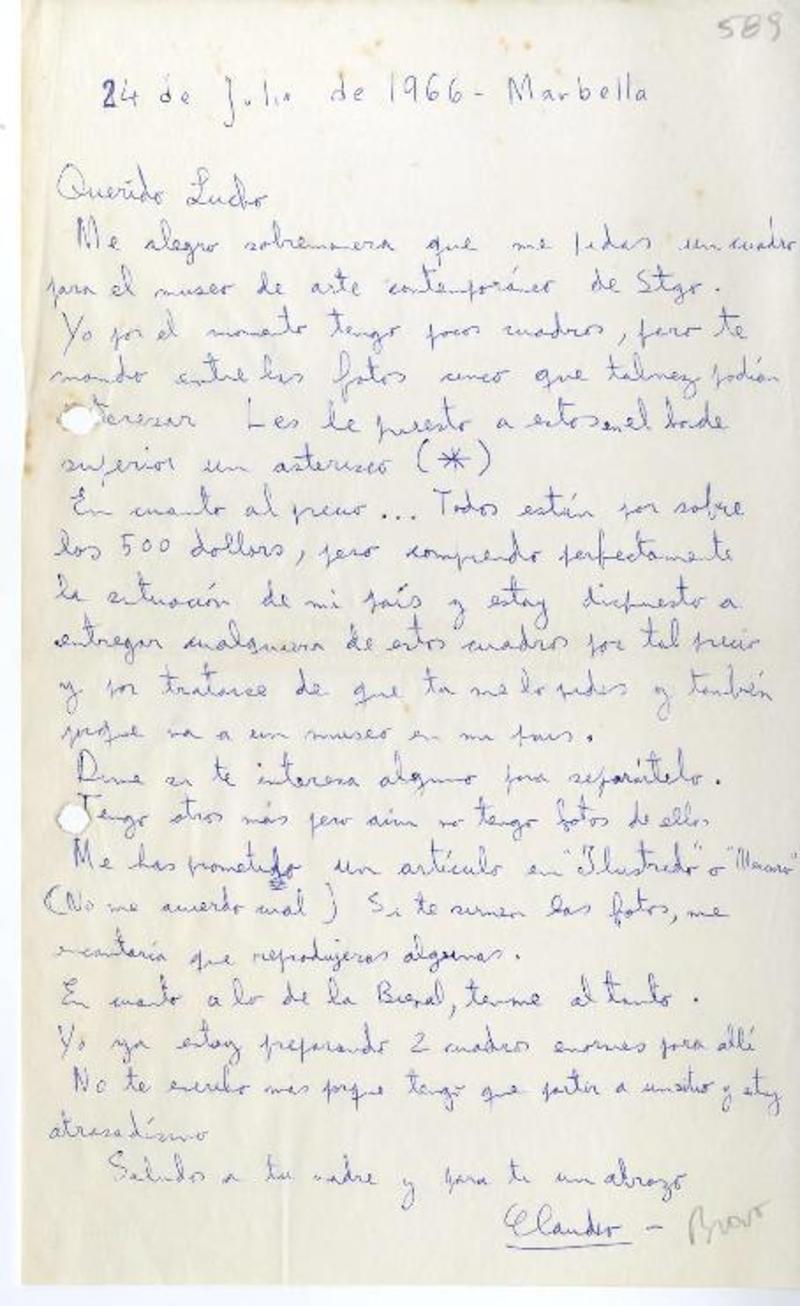 589
24 de Julio de 1966 - Marbella
Querido Lucho
Me alegro sobremanera que me pidas un cuadro
para el museo de arte contemporáneo de Stgo.
Yo por el momento tengo pocos cuadros, pero te
mando entre las fotos cinco que talvez podían
teresar Les he puesto a estos en el borde
superior un asterisco (*)
En cuanto al precio ... Todos están por sobre
los 500 dollors, pero comprendo perfectamente
la situación de mi país y estoy dispuesto a
entregar cualquiera de estos cuadros por tal precio
y por tratarse de que tu me lo pides y también
porque va a un museo en mi pais.
Dime si te interesa alguno para separártelo.
Tengo otros más pero aún no tengo fotos de ellos
Me has prometido un artículo en "Ilustrado" o "Mercurio"
(No me acuerdo cual) Si te sirven las fotos, me
encantaría que reprodujeras algunas.
En cuanto a lo de la Bienal, tenme al tanto.
Yo ya estoy preparando 2 cuadros enormes para allí
No te escribo mas porque tengo que partir a un sitio y estoy
atrasadísimo
Saludos a tu madre y para ti un abrazo
Claudio - Bravo